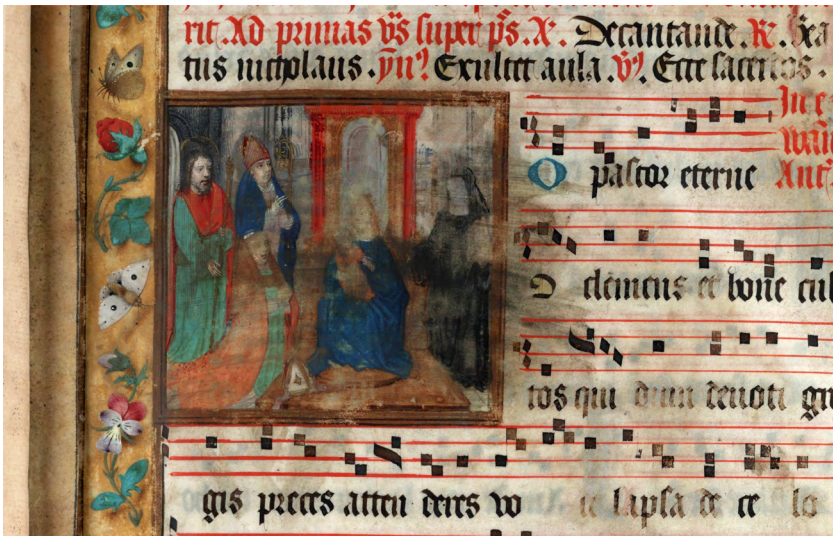 rit. Ad primas v̄s super p̄s. Decantande. R. Bea
tus nicholaus. yn̄ Exultet aula. v̄. Ecce sacerdos.
In e
O pastor eterne Ant̄
O clemens et bone cu
tos qui dum devoti
gis preces atten deres vo ce lapsa de ce lo